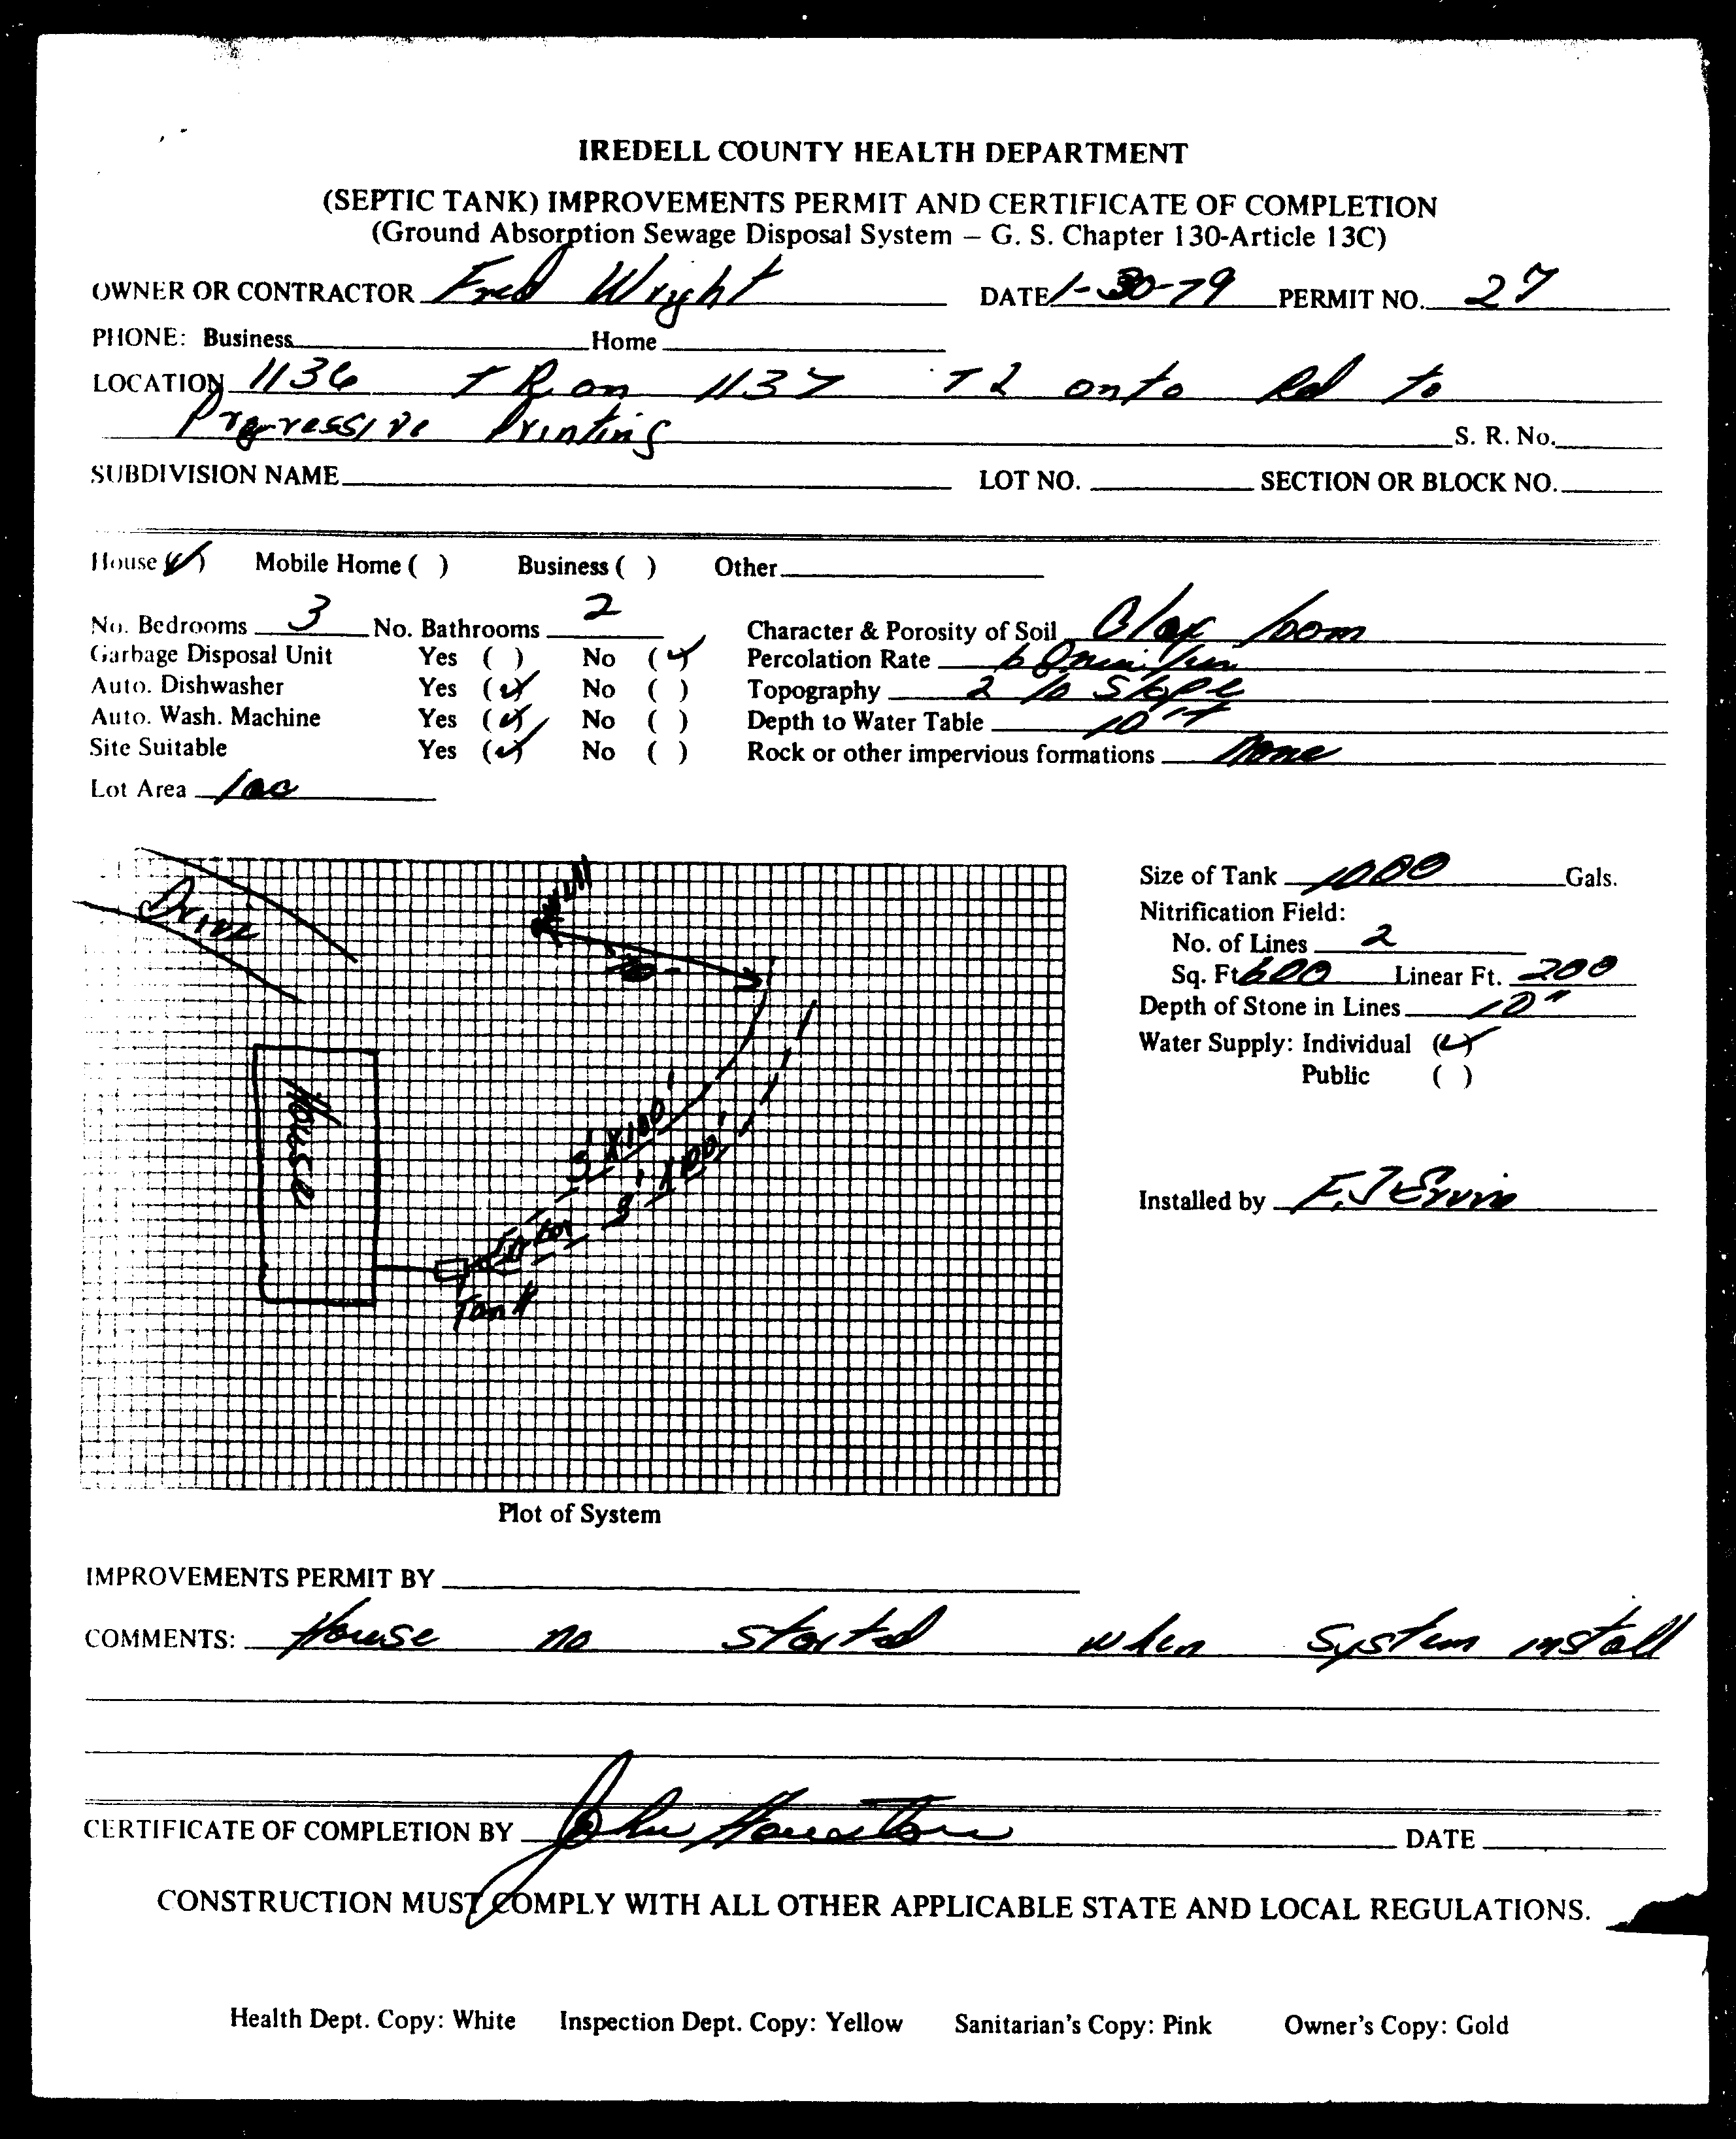 IREDELL COUNTY HEALTH DEPARTMENT
(SEPTIC TANK) IMPROVEMENTS PERMIT AND CERTIFICATE OF COMPLETION
(Ground Absorption Sewage Disposal System – G. S. Chapter 130-Article 13C)
OWNER OR CONTRACTOR Fred Wright DATE 1-30-79 PERMIT NO. 27
PHONE: Business Home
LOCATION 1136 TR on 1137 TL onto Rd to
Progressive Printing S. R. No.
SUBDIVISION NAME LOT NO. SECTION OR BLOCK NO.
House (✓) Mobile Home ( ) Business ( ) Other
No. Bedrooms 3 No. Bathrooms 2 Character & Porosity of Soil Clay loam
Garbage Disposal Unit Yes ( ) No (✓) Percolation Rate
Auto. Dishwasher Yes (✓) No ( ) Topography 2 % Slope
Auto. Wash. Machine Yes (✓) No ( ) Depth to Water Table 10'+
Site Suitable Yes (✓) No ( ) Rock or other impervious formations None
Lot Area 1ac
Size of Tank 1000 Gals.
Nitrification Field:
No. of Lines 2
Sq. Ft 600 Linear Ft. 200
Depth of Stone in Lines 10"
Water Supply: Individual (✓)
Public ( )
Installed by
Drive
Well
House
3' X 100'
3' X 100'
Tank
Plot of System
IMPROVEMENTS PERMIT BY
COMMENTS: House no started when system install
CERTIFICATE OF COMPLETION BY John Houston DATE
CONSTRUCTION MUST COMPLY WITH ALL OTHER APPLICABLE STATE AND LOCAL REGULATIONS.
Health Dept. Copy: White Inspection Dept. Copy: Yellow Sanitarian's Copy: Pink Owner's Copy: Gold